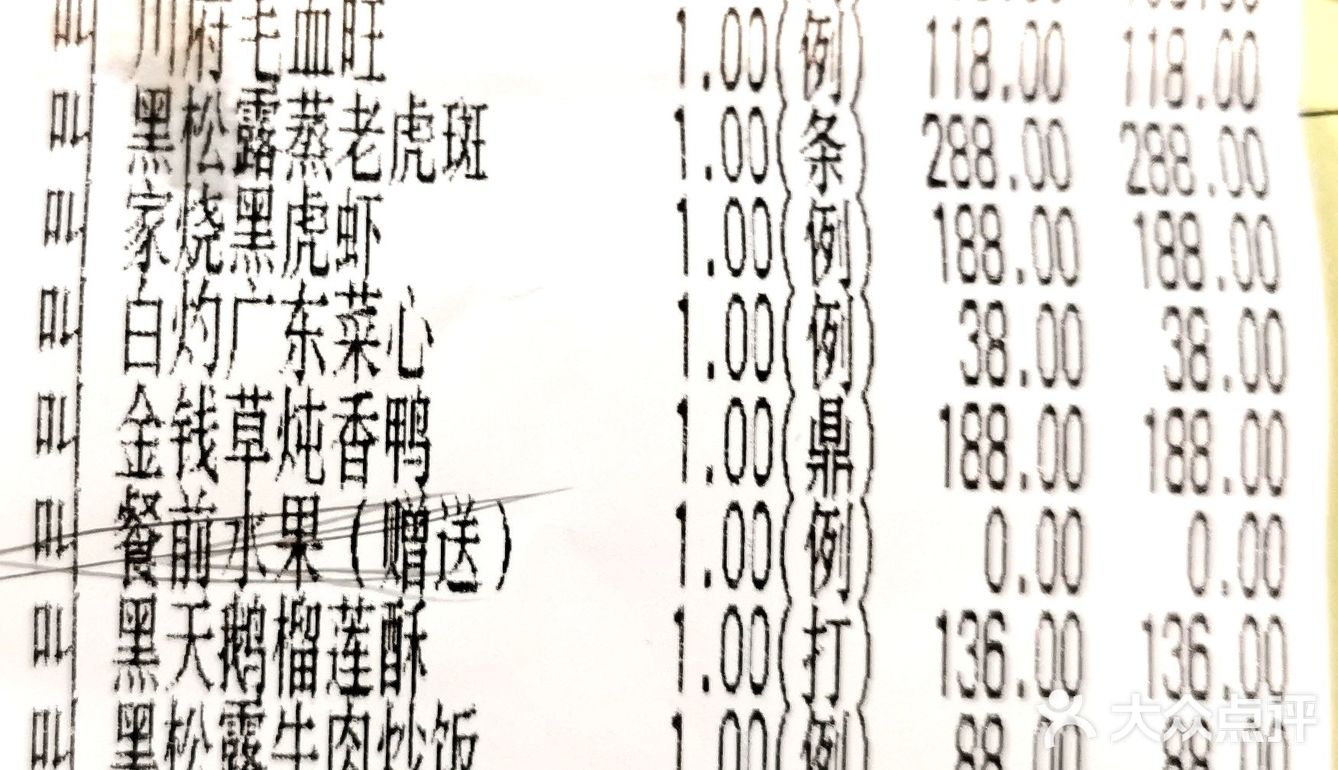 叫 川府毛血旺 1.00(例) 118.00 118.00
叫 黑松露蒸老虎斑 1.00(条) 288.00 288.00
叫 家烧黑虎虾 1.00(例) 188.00 188.00
叫 白灼广东菜心 1.00(例) 38.00 38.00
叫 金钱草炖香鸭 1.00(鼎) 188.00 188.00
叫 餐前水果(赠送) 1.00(例) 0.00 0.00
叫 黑天鹅榴莲酥 1.00(打) 136.00 136.00
叫 黑松露牛肉炒饭 1.00(例) 88.00 88.00
大众点评